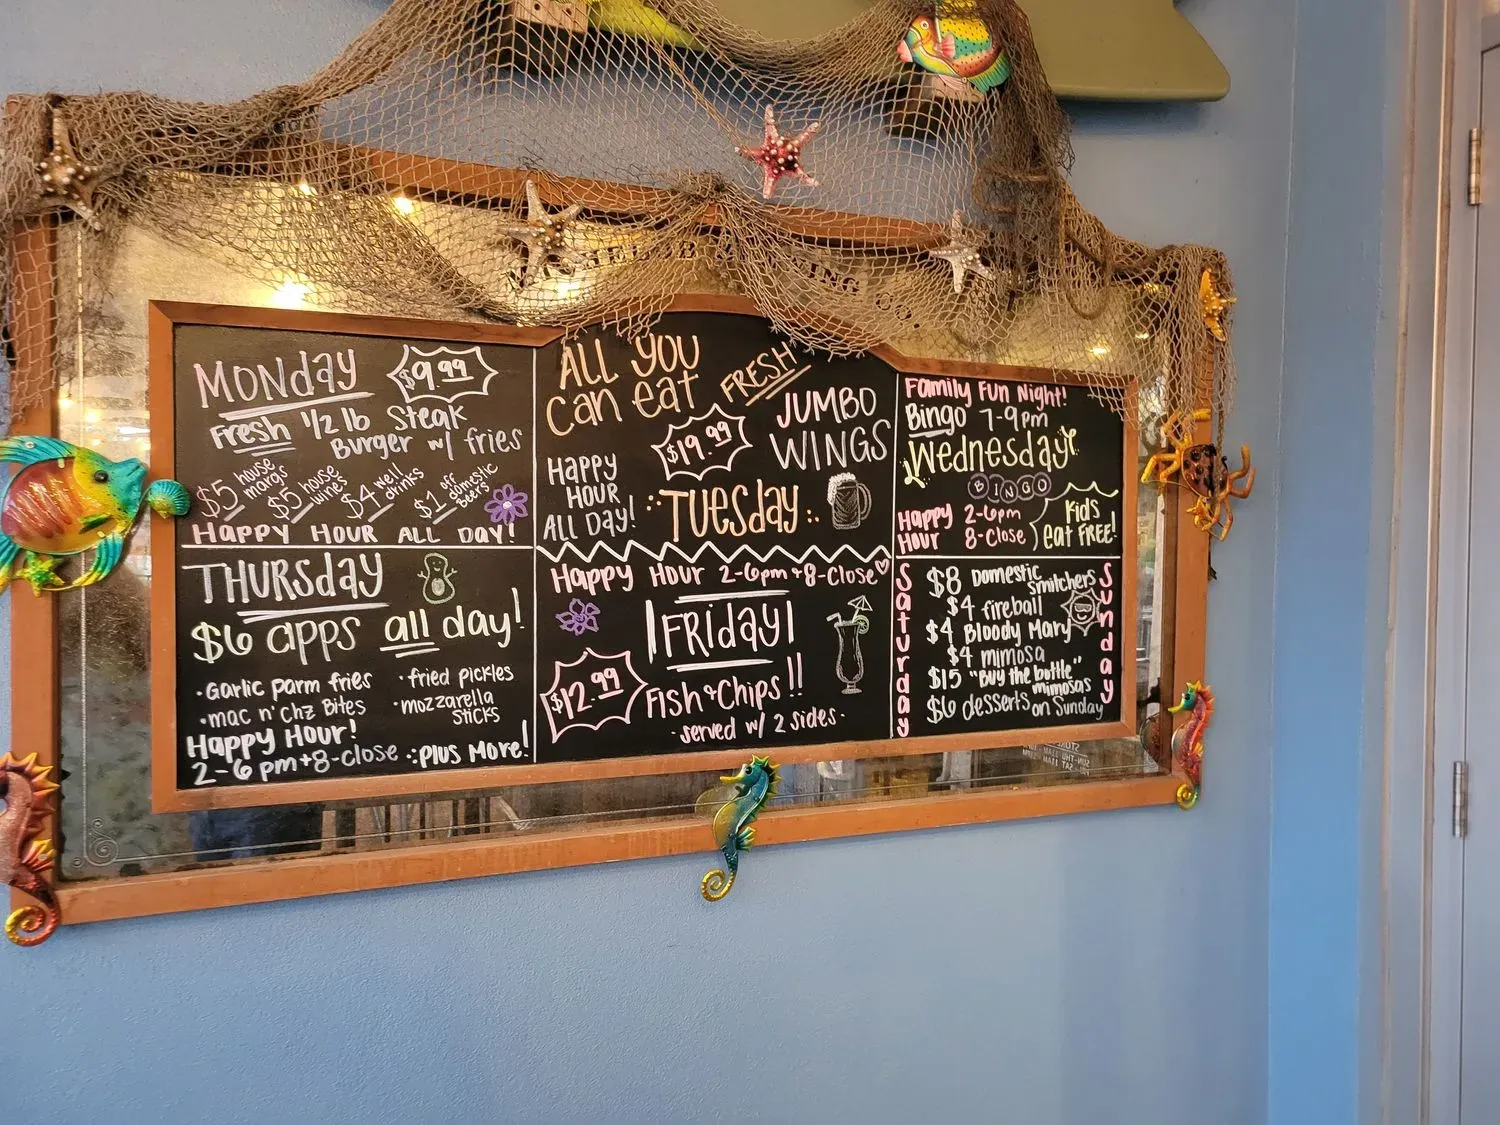 ANHEUSER
ING CO
MONday $9.99
Fresh 1/2 lb Steak
Burger w/ fries
$5 house margs
$5 house wines
$4 well drinks
$1 off domestic beers
HAPPY HOUR ALL DAY!
ALL YOU
can eat
FRESH
JUMBO
WINGS
$19.99
HAPPY
HOUR
ALL DAY!
TUESday
Family Fun Night!
Bingo 7-9pm
Wednesday!
BINGO
Happy Hour
2-6pm
8-Close
Kids
eat FREE!
THURSday
$6 apps all day!
·Garlic parm fries
·mac n' chz Bites
·fried pickles
·mozzarella sticks
Happy Hour!
2-6pm+8-close
:plus More!
Happy Hour 2-6pm+8-Close
FRIday
$12.99
Fish+Chips!!
·served w/ 2 sides·
Saturday
$8 Domestic Smitchers
$4 fireball
$4 Bloody Mary
$4 mimosa
$15 "Buy the bottle"
mimosas
on Sunday
$6 desserts
Sunday